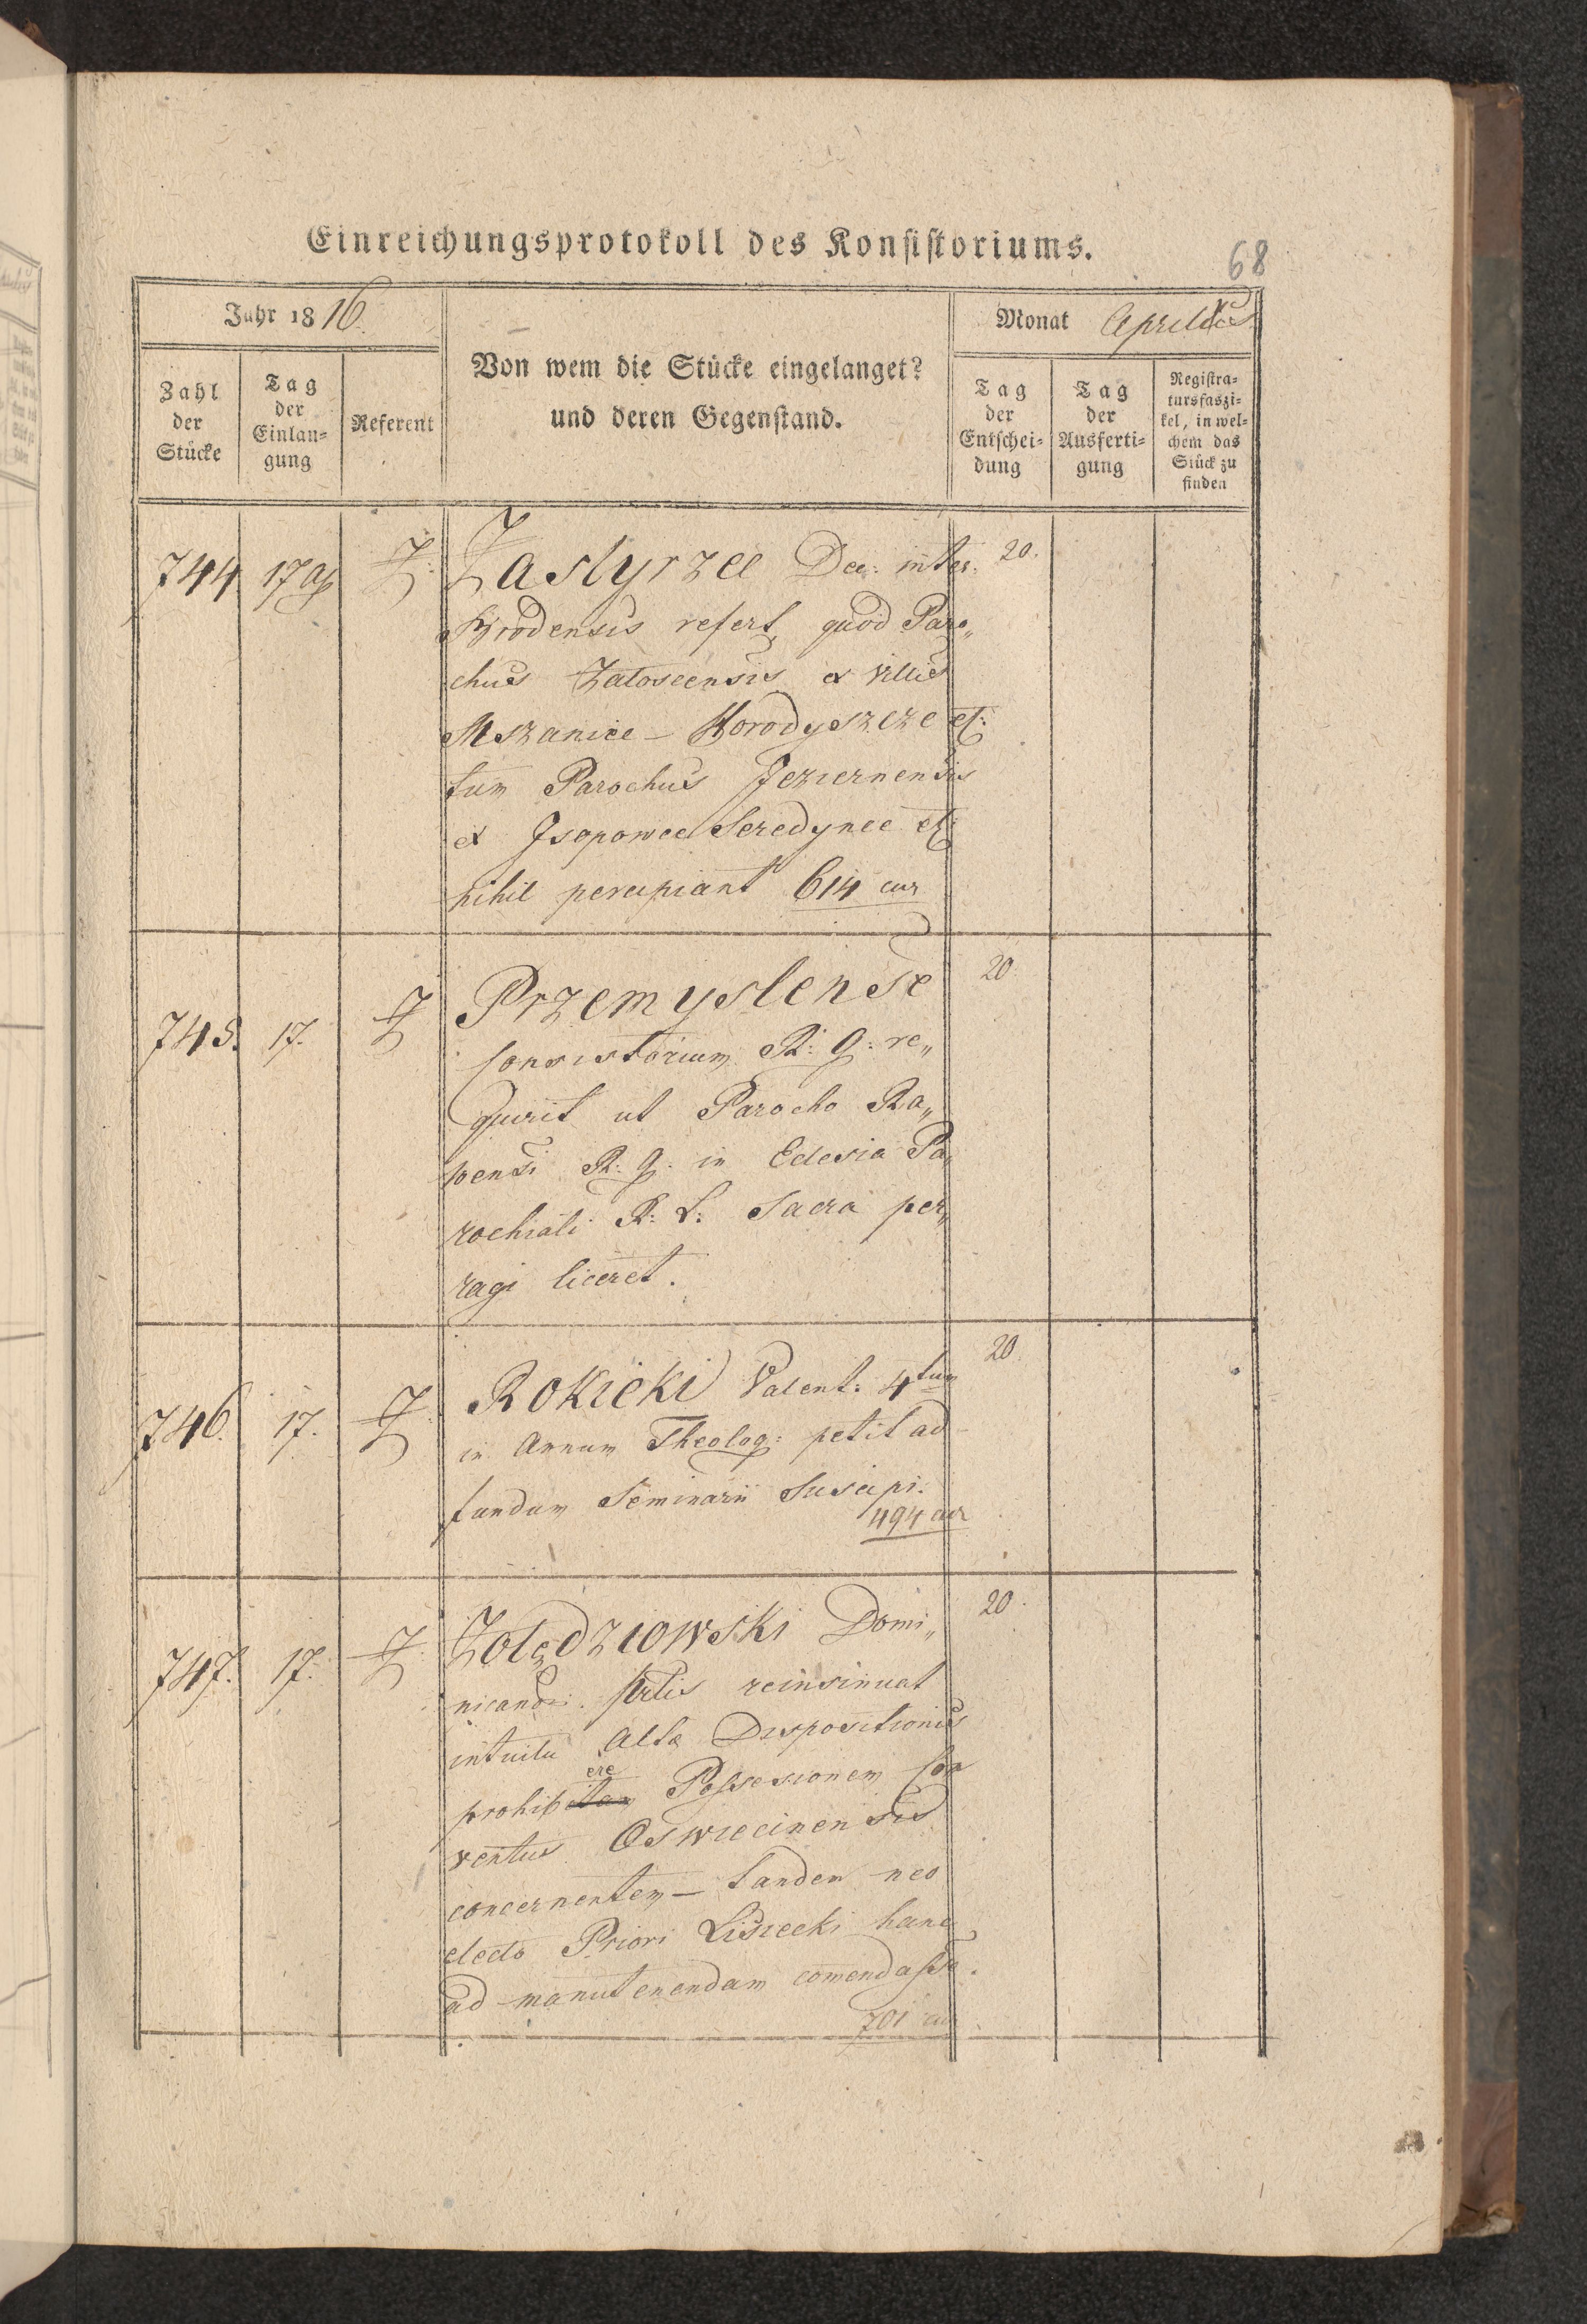 Einreichungsprotokoll des Konsistoriums.
68
Jahr 1816.
Monat Aprilis
Zahl der Stücke
Tag der Einlangung
Referent
Von wem die Stücke eingelanget?
und deren Gegenstand.
Tag der Entscheidung
Tag der Ausfertigung
Registratursfaszikel, in welchem das Stück zu finden
744. 17 Ap Z: Zastyrzec Dec: inter: 20.
Brodensis refert, quod Paro„
chus Zaloscensis ex villis
Mszanice – Horodyszcze et:
tum Parochus Jeziernensis
ex Isopowce Seredynce et:
nihil percipiant 614 cur
745. 17. Z Przemyslense 20.
Consistorium R: G: re„
quirit ut Parocho Ra„
pensi R: G: in Eclesia Pa„
rochiali R: L: Sacra per„
ragi liceret.
746. 17. Z: Rokicki Valent: 4tum 20.
in Annum Theolog: petit ad
fundum Seminarii Suscipi.
494 cur
747. 17. Z: Zolędziowski Domi„ 20.
nicanor: reinsinuat
intuitu Altæ Dispositionis
ere
prohib Possesionem Con
ventus Oswiecinensis
concernentem – tandem neo
electo Priori Lisiecki hanc
ad manutenendam comendasse.
701 cur